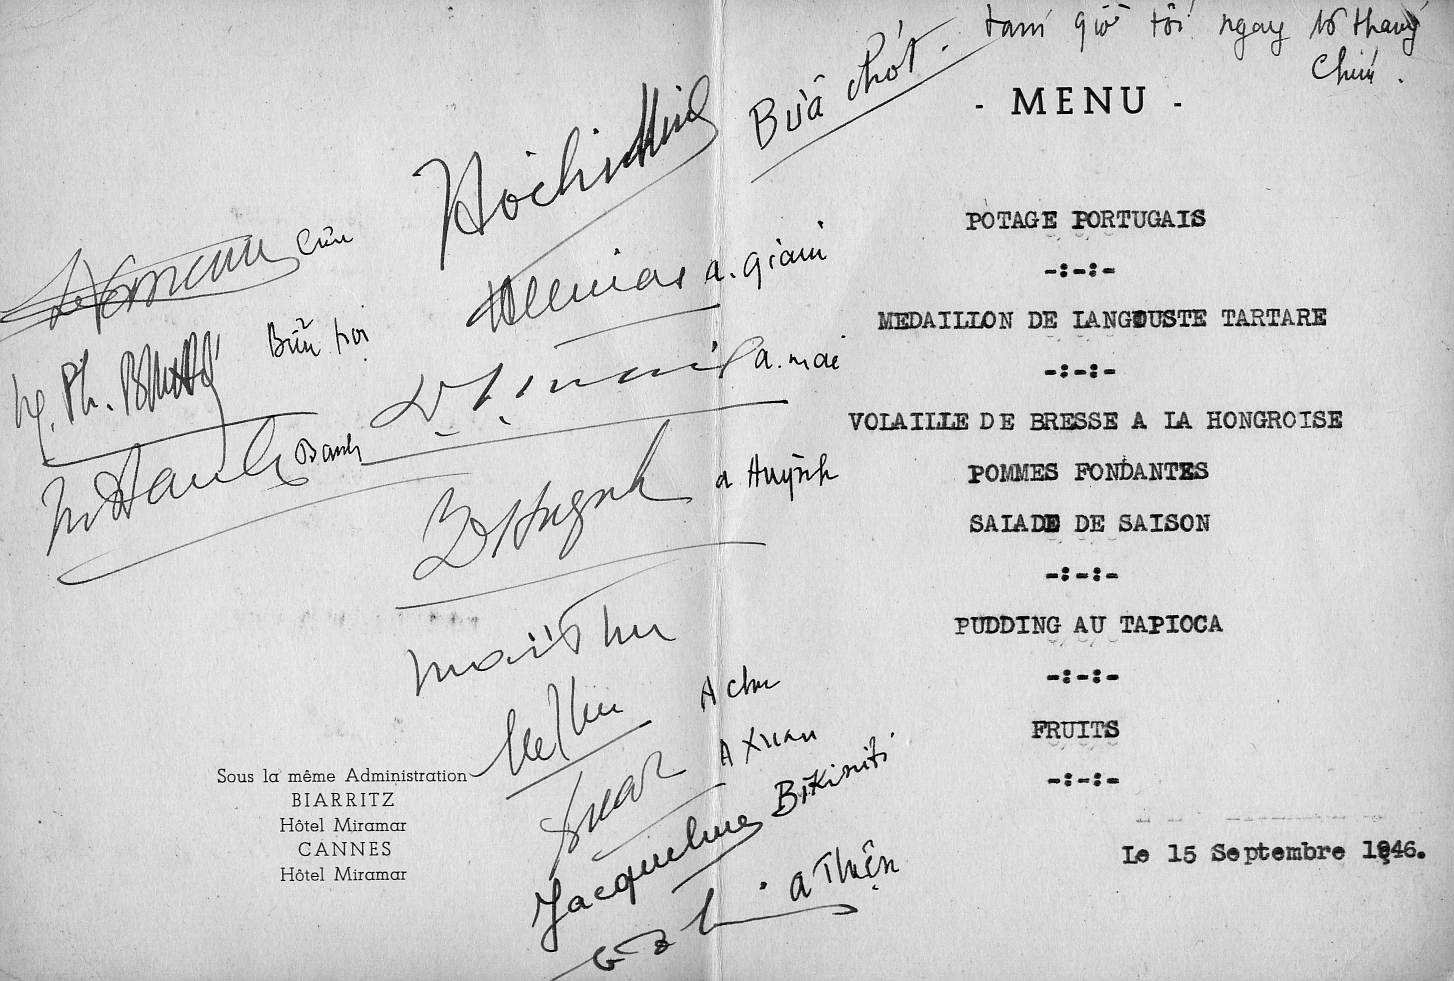 Bữa chót. tám giờ tối ngay 15 thang
Chín.
- MENU -
POTAGE PORTUGAIS
-:-:-
MEDAILLON DE LANGOUSTE TARTARE
-:-:-
VOLAILLE DE BRESSE A LA HONGROISE
POMMES FONDANTES
SALADE DE SAISON
-:-:-
PUDDING AU TAPIOCA
-:-:-
FRUITS
-:-:-
Le 15 Septembre 1946.
Hochiminh
a. giam
Bửu hoi
a. mai
Banh
a Huỳnh
DHuynh
A chu
A Xuan
Jacqueline Bikiniti
a Thiện
Sous la même Administration
BIARRITZ
Hôtel Miramar
CANNES
Hôtel Miramar